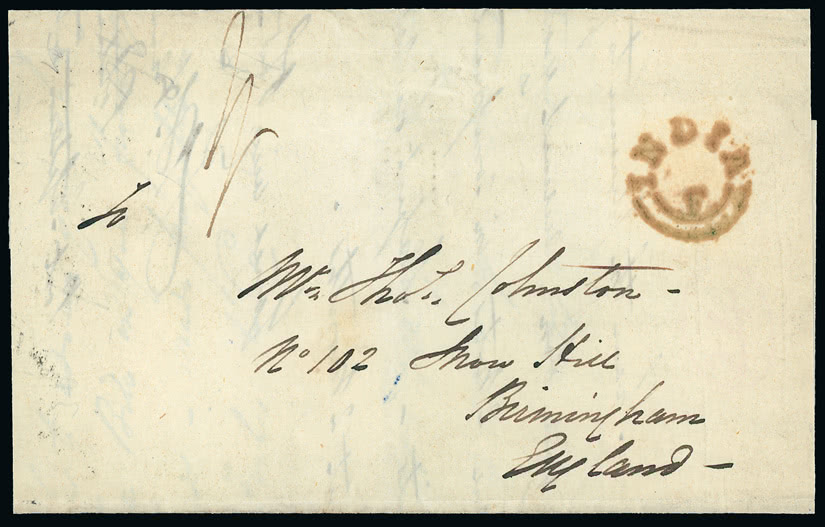 INDIA
F
To
Mr. Thos. Johnston -
No 102 Snow Hill
Birmingham
England -